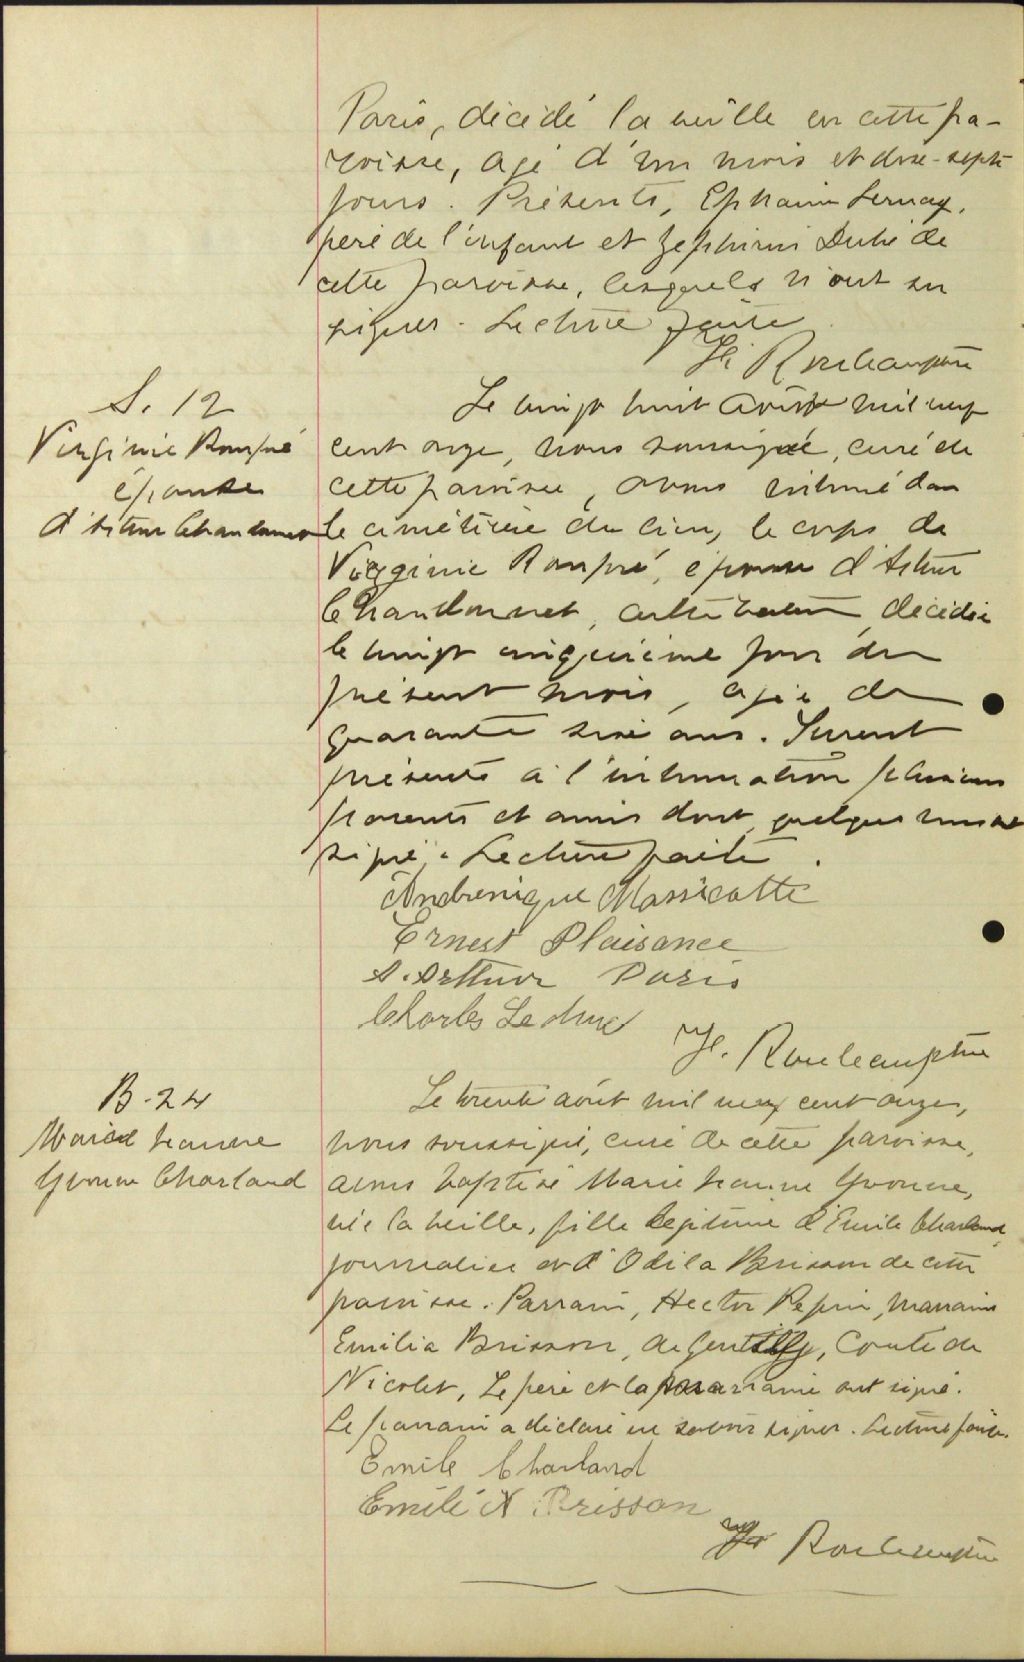 Paris, décédé la veille en cette pa-
roisse, agé d'un mois et dix-sept
jours. Présents, Ephraim Lemay,
père de l'enfant et Zephirin Dubé de
cette paroisse, lesquels n'ont su
signer. Lecture faite
H. Roul ptre
S. 12
Virginie Rompré
épouse
d'Artur Chandonnet
Le vingt huit Août mil neuf
cent onze, nous soussigné, curé de
cette paroisse, avons inhumé dans
le cimétière du lieu, le corps de
Virginie Rompré, épouse d'Artur
Chandonnet, cultivateur, décédée
le vingt cinquième jour du
présent mois, agée de
quarante six ans. Furent
présents à l'inhumation plusieurs
parents et amis dont quelques uns ont
signé. Lecture faite.
Andronique Massicotte
Ernest Plaisance
A. Arthur Paris
Charles Leduc
H. ptre
B-24
Marie Jeanne
Yvonne Charland
Le trente août mil neuf cent onze,
nous soussigné, curé de cette paroisse,
avons baptisé Marie Jeanne Yvonne,
née la veille, fille légitime d'Emile Charland,
journalier et d'Odila Brisson de cette
paroisse. Parrain, Hector Pepin, marraine
Emilia Brisson, de Gentilly, Comté de
Nicolet, Le père et la marraine ont signé.
Le parrain a déclaré ne savoir signer. Lecture faite.
Emile Charland
Emilia Brisson
H. ptre